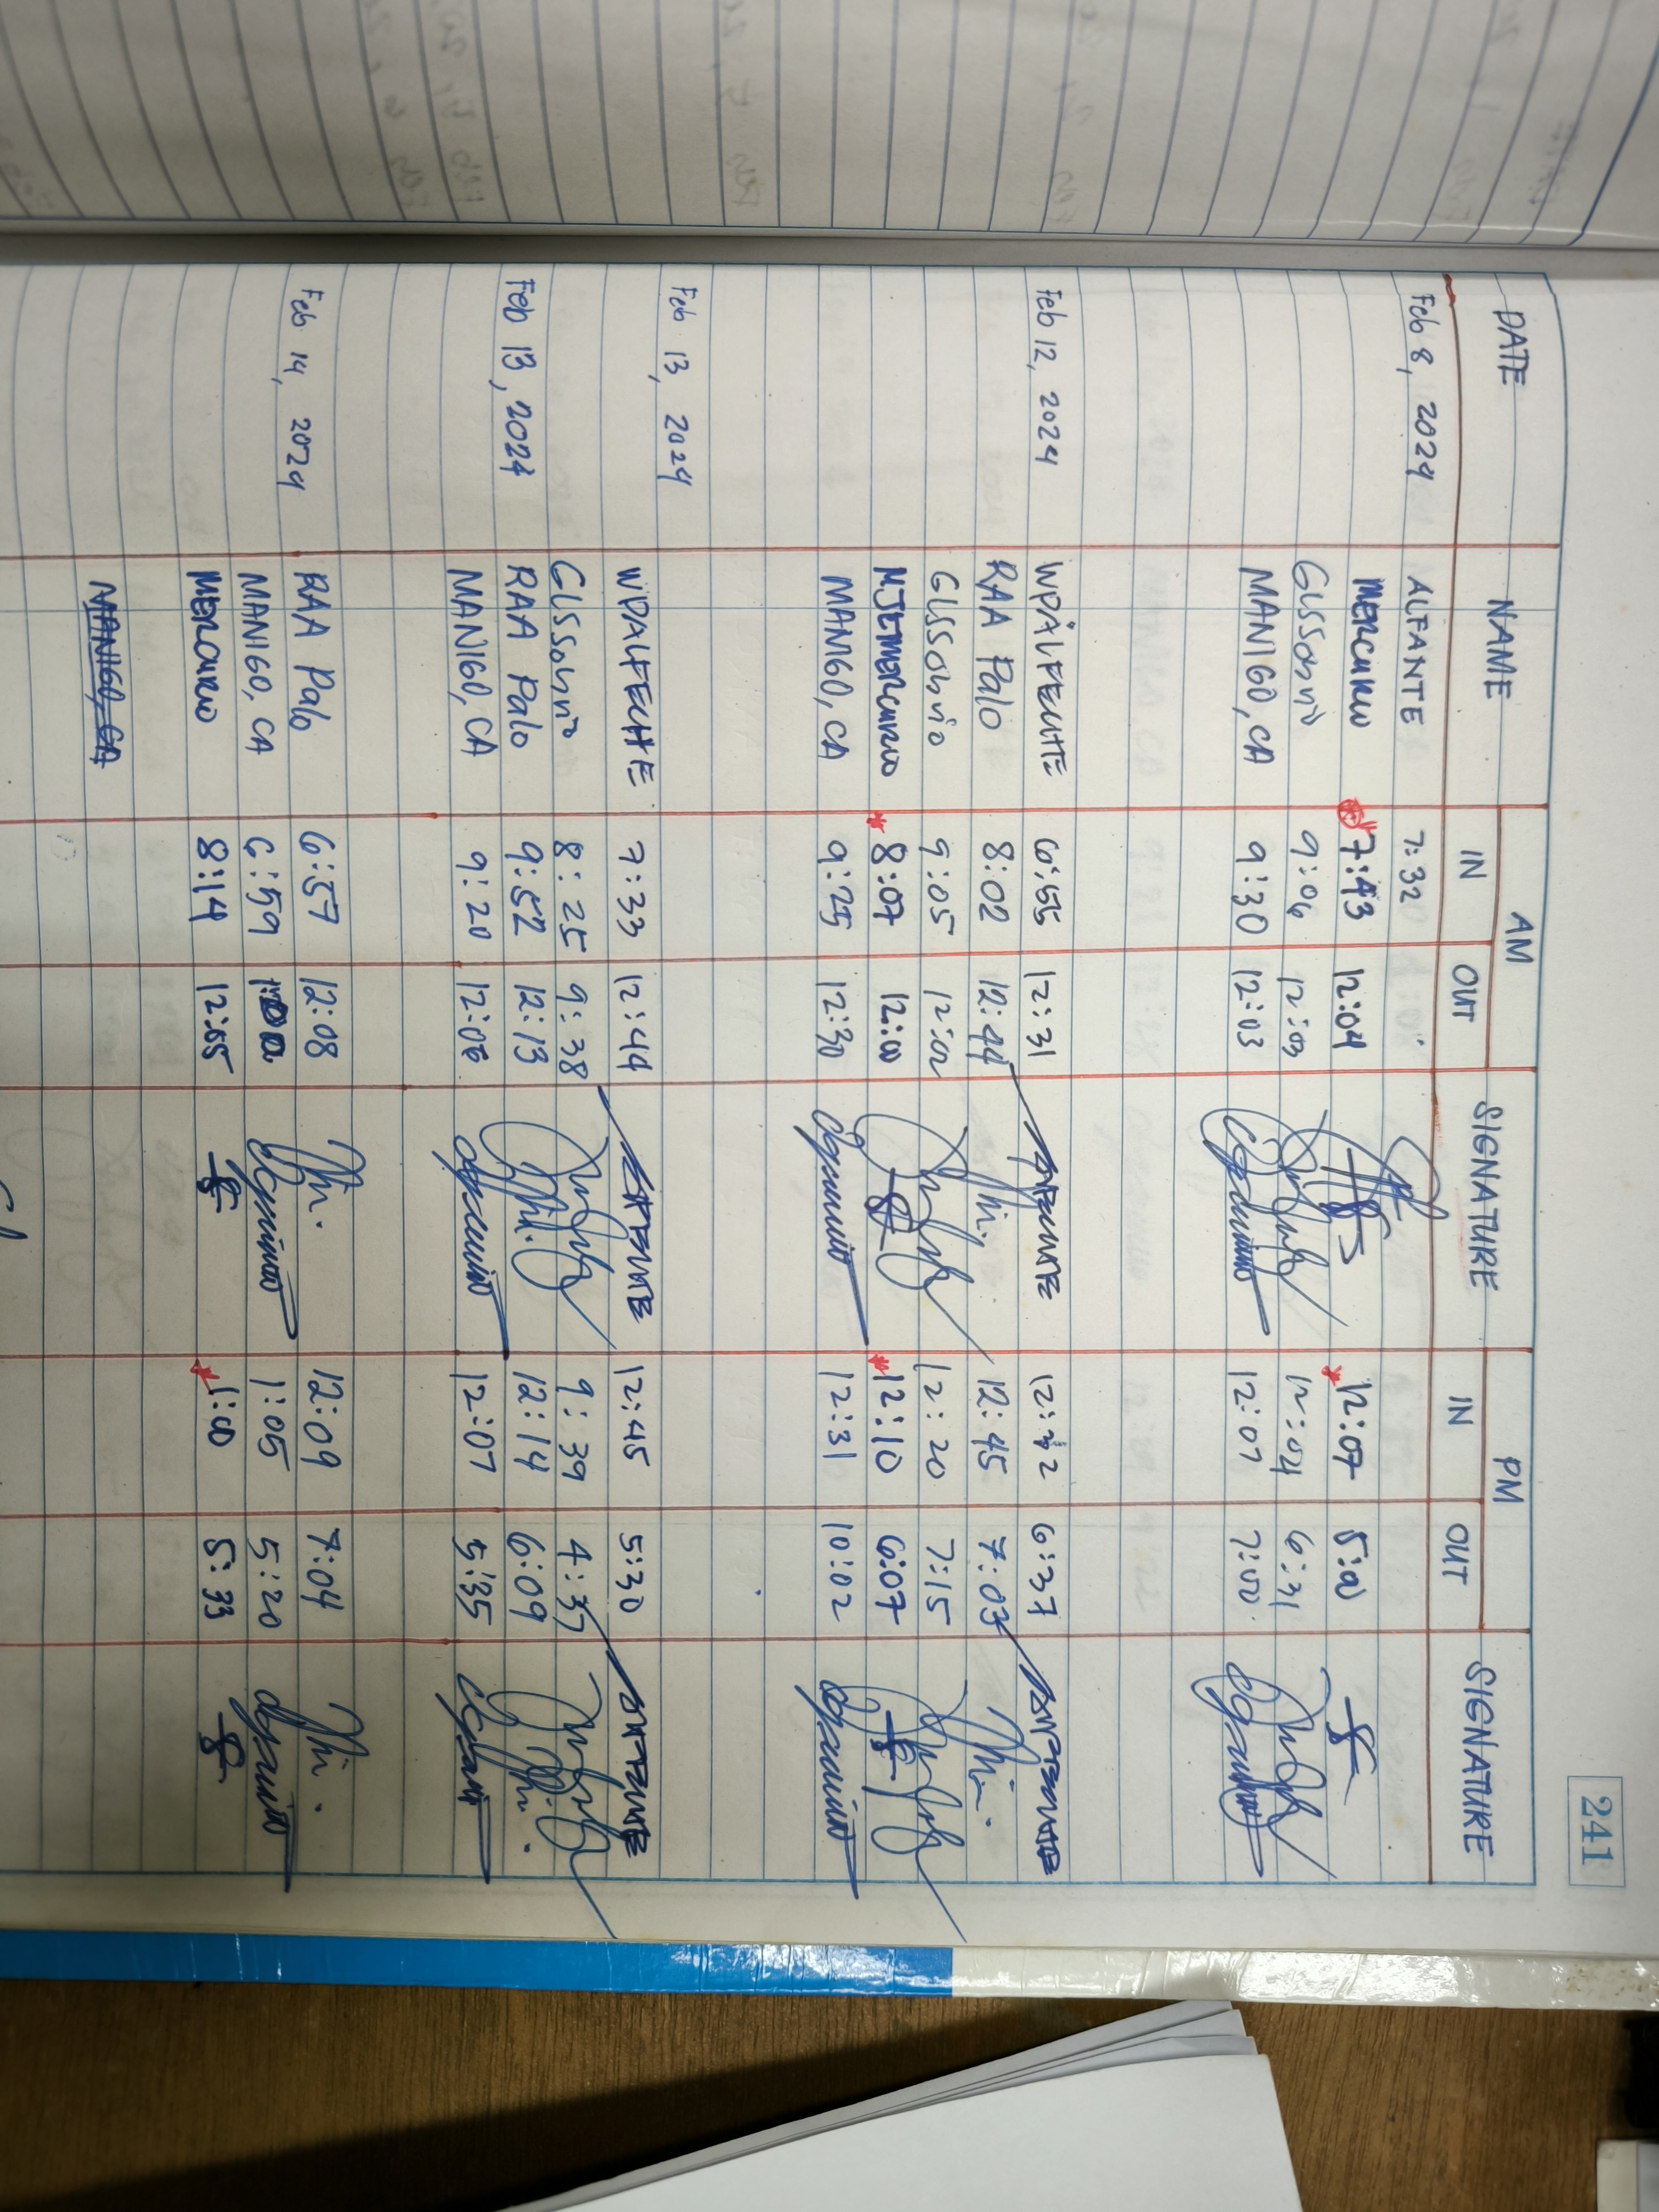 241
DATE NAME AM SIGNATURE PM SIGNATURE
IN OUT IN OUT
Feb 8, 2024 ALFANTE 7:32
MERCURIO 7:43 12:04 12:07 5:00
GLSSonio 9:04 12:03 12:04 6:31
MANIGO, CA 9:30 12:03 12:07 7:00
Feb 12, 2024 WPALFECHE 6:55 12:31 12:32 6:37
RAA Palo 8:02 12:44 12:45 7:03
GLSSonio 9:05 12:20 7:15
MJEMERCURIO 8:07 12:00 12:10 6:07
MANIGO, CA 9:25 12:30 12:31 10:02
Feb 13, 2024
WPALFECHE 7:33 12:44 12:45 5:30
GLSSonio 8:25 9:38 9:39 4:37
Feb 13, 2024 RAA Palo 9:52 12:13 12:14 6:09
MANIGO, CA 9:20 12:06 12:07 5:35
Feb 14, 2024 RAA Palo 6:57 12:08 12:09 7:04
MANIGO, CA 6:59 1:05 5:20
MERCURIO 8:14 12:55 1:00 5:33
MANIGO, CA